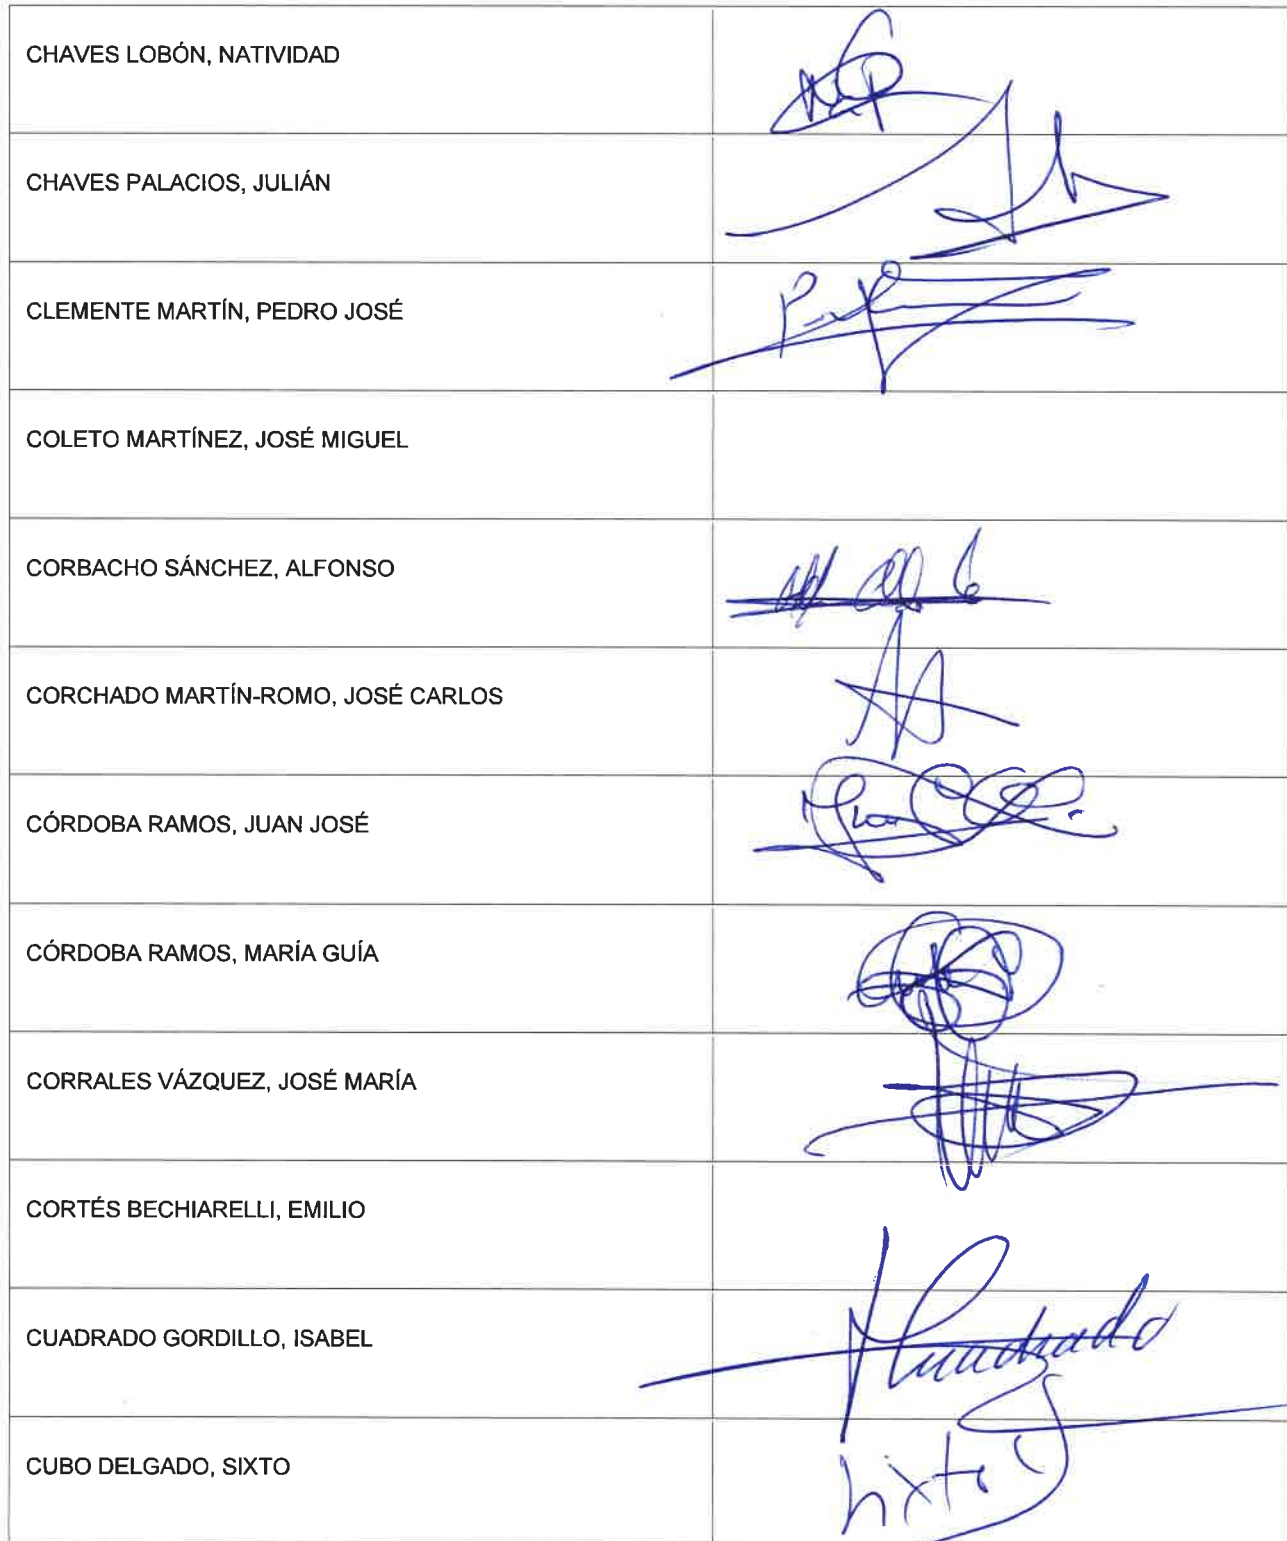 CHAVES LOBÓN, NATIVIDAD
CHAVES PALACIOS, JULIÁN
CLEMENTE MARTÍN, PEDRO JOSÉ
COLETO MARTÍNEZ, JOSÉ MIGUEL
CORBACHO SÁNCHEZ, ALFONSO
CORCHADO MARTÍN-ROMO, JOSÉ CARLOS
CÓRDOBA RAMOS, JUAN JOSÉ
CÓRDOBA RAMOS, MARÍA GUÍA
CORRALES VÁZQUEZ, JOSÉ MARÍA
CORTÉS BECHIARELLI, EMILIO
CUADRADO GORDILLO, ISABEL
Cuadrado
CUBO DELGADO, SIXTO
Sixto